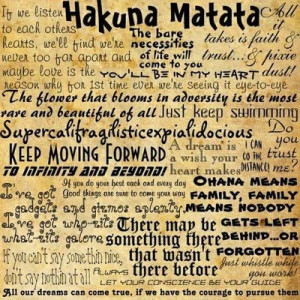 If we listen
to each others
hearts, we'll find we're
never too far apart and
maybe love is the
reason why for 1st time ever we're seeing it eye-to-eye
Hakuna Matata
The bare
necessities
of life will
come to you
YOU'LL BE IN MY HEART
All
it
takes is faith &
trust...& pixie
dust!
The flower that blooms in adversity is the most
rare and beautiful of all
Just keep swimming
Supercalifragilisticexpialidocious
Do
you
trust
me?
KEEP MOVING FORWARD
A dream is
a wish your
heart makes
I CAN
GO THE
DISTANCE
TO INFINITY AND BEYOND!
If you do your best each and every day
Good things are sure to come your way
I've got
gadgets and gizmos aplenty
I've got who-zits
and what-zits galore
OHANA MEANS
FAMILY, FAMILY
MEANS NOBODY
GETS LEFT
BEHIND...OR
FORGOTTEN
There may be
something there
that wasn't
there before
If you can't say somethin nice,
don't say nothin at all
Just whistle while
you work!
ALWAYS
LET YOUR CONSCIENCE BE YOUR GUIDE
All our dreams can come true, if we have the courage to pursue them